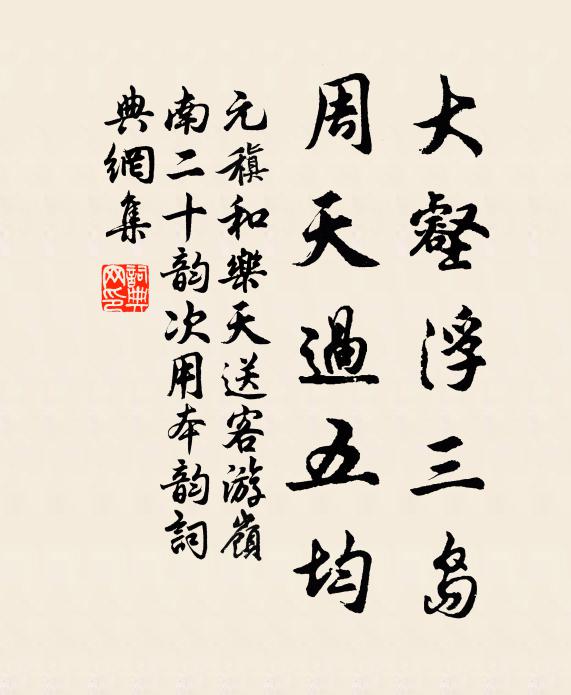 大壑浮三岛
周天過五均
元稹和樂天送客游嶺
南二十韵次用本韵詞
典網集
詞典
网印